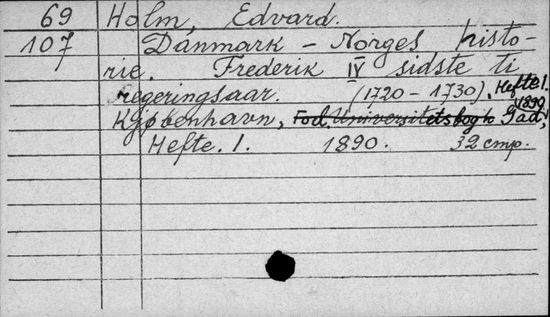 69 Holm, Edvard.
107 Danmark - Norges histo-
rie. Frederik IV sidste ti
regeringsaar. (1720 - 1730). Hefte 1.
1890
Kjøbenhavn, Fod. Universitetsbogh Gad,
Hefte. 1. 1890. 32 cmp.